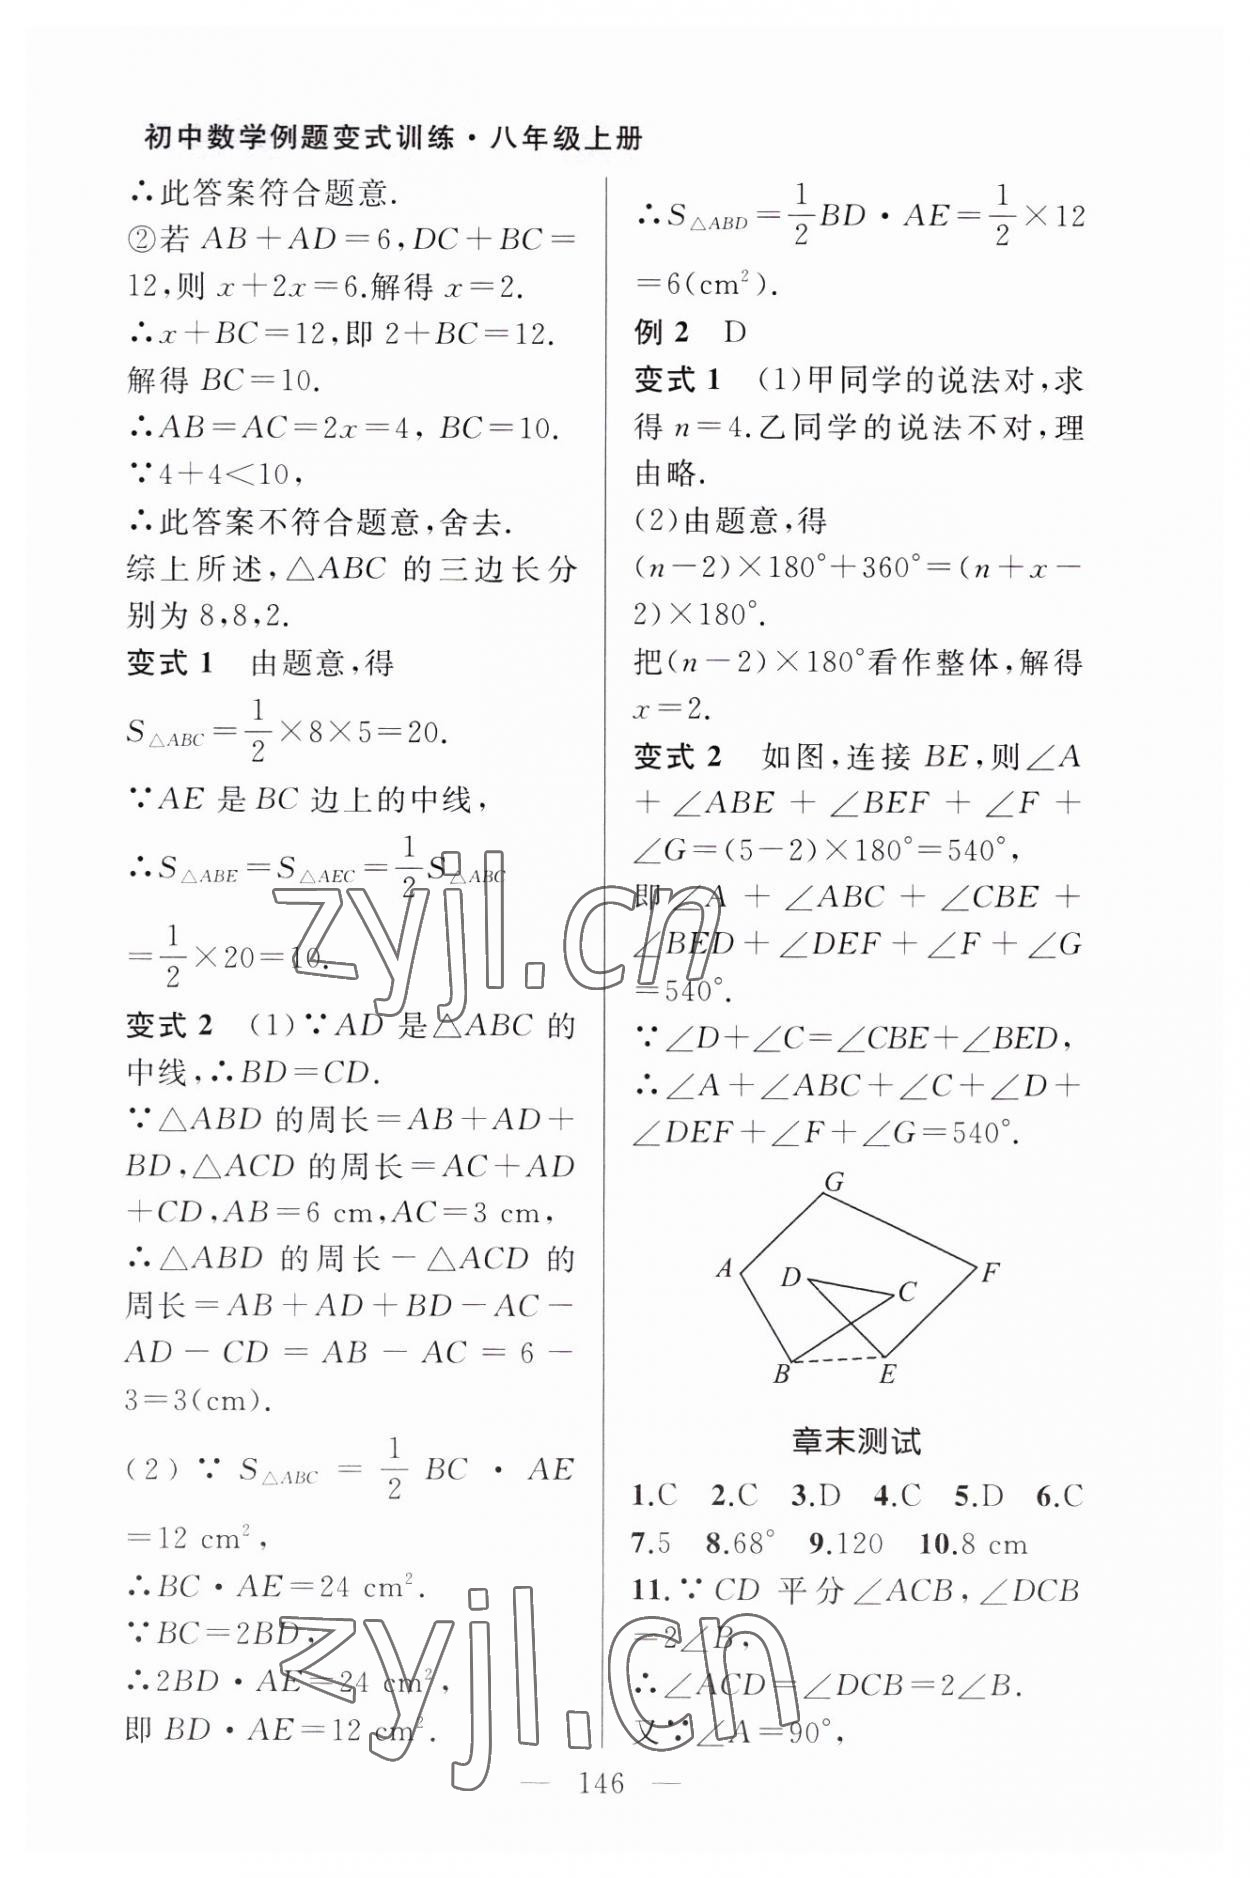 初中数学例题变式训练·八年级上册
∴此答案符合题意.
②若 AB+AD=6,DC+BC=
12,则 x+2x=6.解得 x=2.
∴x+BC=12,即 2+BC=12.
解得 BC=10.
∴AB=AC=2x=4, BC=10.
∵4+4<10,
∴此答案不符合题意,舍去.
综上所述,△ABC 的三边长分
别为 8,8,2.
变式 1 由题意,得
S△ABC=1/2×8×5=20.
∵AE 是 BC 边上的中线,
∴S△ABE=S△AEC=1/2S△ABC
=1/2×20=10.
变式 2 (1)∵AD 是△ABC 的
中线,∴BD=CD.
∵△ABD 的周长=AB+AD+
BD,△ACD 的周长=AC+AD
+CD,AB=6 cm,AC=3 cm,
∴△ABD 的周长-△ACD 的
周长=AB+AD+BD-AC-
AD-CD=AB-AC=6-
3=3(cm).
(2)∵S△ABC=1/2BC·AE
=12 cm²,
∴BC·AE=24 cm².
∵BC=2BD,
∴2BD·AE=24 cm²,
即 BD·AE=12 cm².
∴S△ABD=1/2BD·AE=1/2×12
=6(cm²).
例 2 D
变式 1 (1)甲同学的说法对,求
得 n=4.乙同学的说法不对,理
由略.
(2)由题意,得
(n-2)×180°+360°=(n+x-
2)×180°.
把(n-2)×180°看作整体,解得
x=2.
变式 2 如图,连接 BE,则∠A
+∠ABE+∠BEF+∠F+
∠G=(5-2)×180°=540°,
即∠A+∠ABC+∠CBE+
∠BED+∠DEF+∠F+∠G
=540°.
∵∠D+∠C=∠CBE+∠BED,
∴∠A+∠ABC+∠C+∠D+
∠DEF+∠F+∠G=540°.
G
A
D
C
F
B
E
章末测试
1.C 2.C 3.D 4.C 5.D 6.C
7.5 8.68° 9.120 10.8 cm
11.∵CD 平分∠ACB,∠DCB
=2∠B,
∴∠ACD=∠DCB=2∠B.
又∵∠A=90°,
— 146 —
zyjl.cn
zyjl.cn